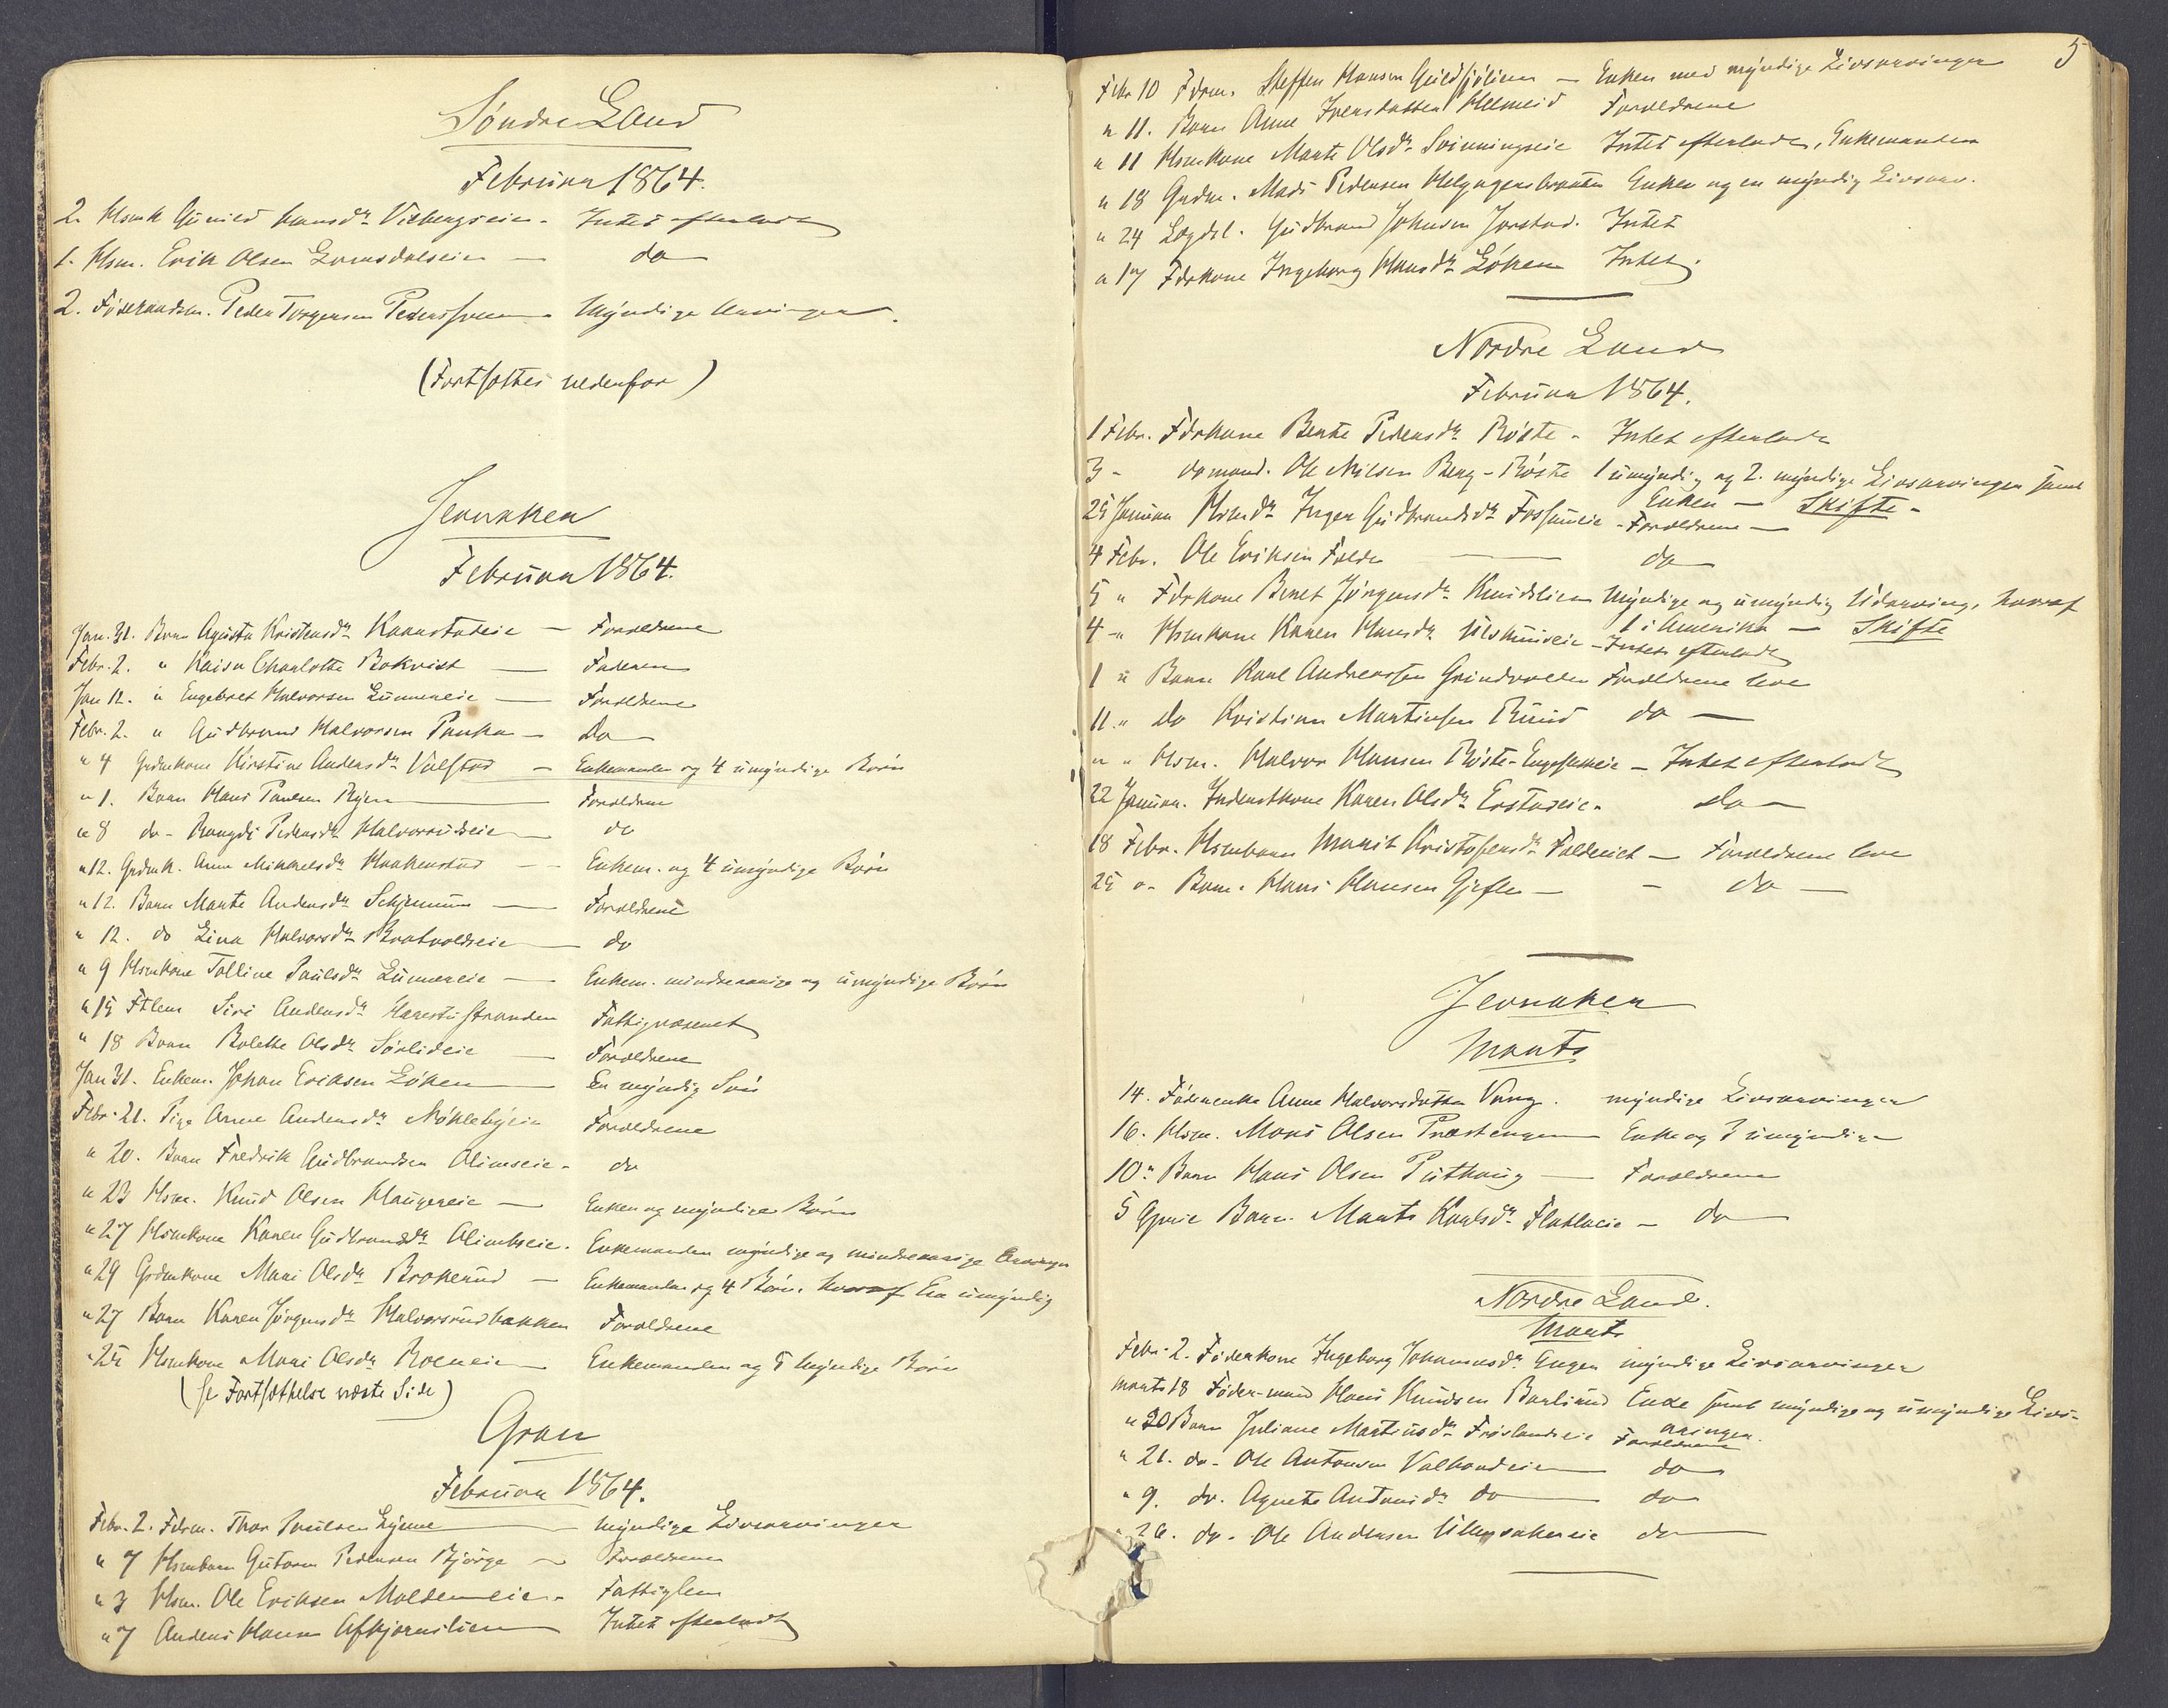 Søndre Land
Februar 1864.
2. Hsmk Gunild Hansdr Viebergseie - Intet efterladt
1. Hsm. Erik Olsen Lomsdalseie - do
2. Føderaadsm. Peder Torgersen - Myndige Arvinger.
(Fortsættes nedenfor)
Jevnaker
Februar 1864.
Jan. 31. Barn Agusta Kristensdr - Forældrene
Febr. 2. " Kaisa Charlotte Bokvist - Faderen
Jan 12. " Engebret Halvorsen Lunnereie - Forældrene
Febr. 2. " Gudbrand Halvorsen - Do
" 4 Grdmkone Kirstine Andersdr - Enkemanden og 4 umyndige Børn
" 1. Barn Hans Paulsen - Forældrene
" 8 do - Rangdi Pedersdr Halvorsrudeie - do
" 12. Grdmk. Anne Mikkelsdr Haakenstad - Enkem. og 4 umyndige Børn
" 12. Barn Marte Andersdr - Forældrene
" 12. do Lina Halvorsdr Bratvoldseie - do
" 9 Hsmkone Talline Paulsdr Lunnereie - Enkem. mindreaarige og umyndige Børn
" 15 Ftlem Siri Andersdr Harestustranden Fattigvæsenet
" 18 Barn Bolette Olsdr Sørlideie - Forældrene
Jan 31. Enkem. Johan Eriksen Løken - En myndig Søn
Febr. 21. Pige Anne Andersdr Nøklebyeie Forældrene
" 20. Barn Fredrik Gudbrandsen Olimseie - do
" 23 Hsm. Knud Olsen Haugereie - Enken og myndige Børn
" 27 Hsmkone Karen Gudbrandsdr Olimbseie. Enkemanden myndige og mindreaarige Arvinger
" 29 Grdmkone Mari Olsdr Brokerud - Enkemanden og 4 Børn. hvoraf En umyndig
" 27 Barn Karen Jørgensdr Halvorsrudbakken Forældrene
" 25 Hsmkone Mari Olsdr Roeneie - Enkemanden og 5 Myndige Børn
(se Fortsættelse næste Side)
Gran
Februar 1864.
Febr. 2. Fdrm. Thor Poulsen - myndige Livsarvinger
" 7 Hsmbarn Gutorm Pedersen Bjørge - Forældrene
" 3 Hsm. Ole Eriksen Moldeneie - Fattiglem
" 7 Anders Hansen - Intet efterladt
5
Febr 10 Fdrm. Steffen Hansen - Enken med myndige Livsarvinger
" 11. Barn Anne Iversdatter Helmeid Forældrene
" 11 Hsmkone Marte Olsdr Svinningseie Intet efterladt, Enkemanden
" 18 Grdm. Mads Pedersen Helgagersbraaten Enken og en myndig Livsarv.
" 24 Lægdsl. Gudbrand Johnsen Jorstad. Intet
" 17 Fdrkone Ingeborg Hansdr Løken Intet.
Nordre Land
Februar 1864.
1 Febr. Fdrkone Berte Pedersdr Røste - Intet efterladt
3 - do mand. Ole Nilsen Berg - Røste 1 umyndig og 2. myndige Livsarvinger samt
Enken - Skifte -
25 Januar Hsmdr Inger Gudbrandsdr Fossumeie - Forældrene -
4 Febr. Ole Eriksen Falde - do
5 " Fdrkone Beret Jørgensdr Knudslien Myndige og umyndig Udarving. hvoraf
1 i Amerika - Skifte
4 - " Hsmkone Karen Hansdr - Intet efterladt
1 " Barn Karl Andreassen Grindvolden Forældrene leve
11. " do Kristian Martinsen Ruud do -
" " Hsm. Halvor Hansen Røste- - Intet efterladt
22 Januar. Inderstkone Karen Olsdr Erstadeie - do -
18 Febr. Hsmbarn Marit Kristofersdr - Forældrene leve
25 " - Barn. Hans Hansen - - do -
Jevnaker
Marts
14. Føderenke Anne Halvorsdatter Vang. myndige Livsarvinger
16. Hsm. Mons Olsen Præstengen Enke og 3 umyndige
10 " Barn Hans Olsen Puthaug - Forældrene
5 Barn. Marte Karlsdr Flatlaeie - do
Nordre Land.
Marts
Febr. 2. Føderkone Ingeborg Johannesdr Engen myndige Livsarvinger
Marts 18 Føder-mand Hans Knudsen Baalrud Enke samt myndige og umyndige Livs-
arvinger.
" 20 Barn Juliane Martinsdr Frøslandseie Forældrene
" 21. do - Ole Antonsen - do
" 9. do. Agnete Antonsdr do - do
" 26. do - Ole Andersen Ullensakereie do